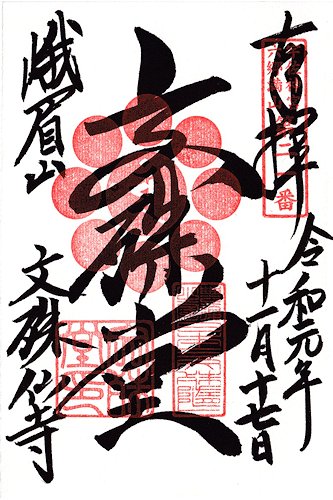 奉拝
令和元年
十一月十七日
文殊堂
峨眉山
文殊仙寺